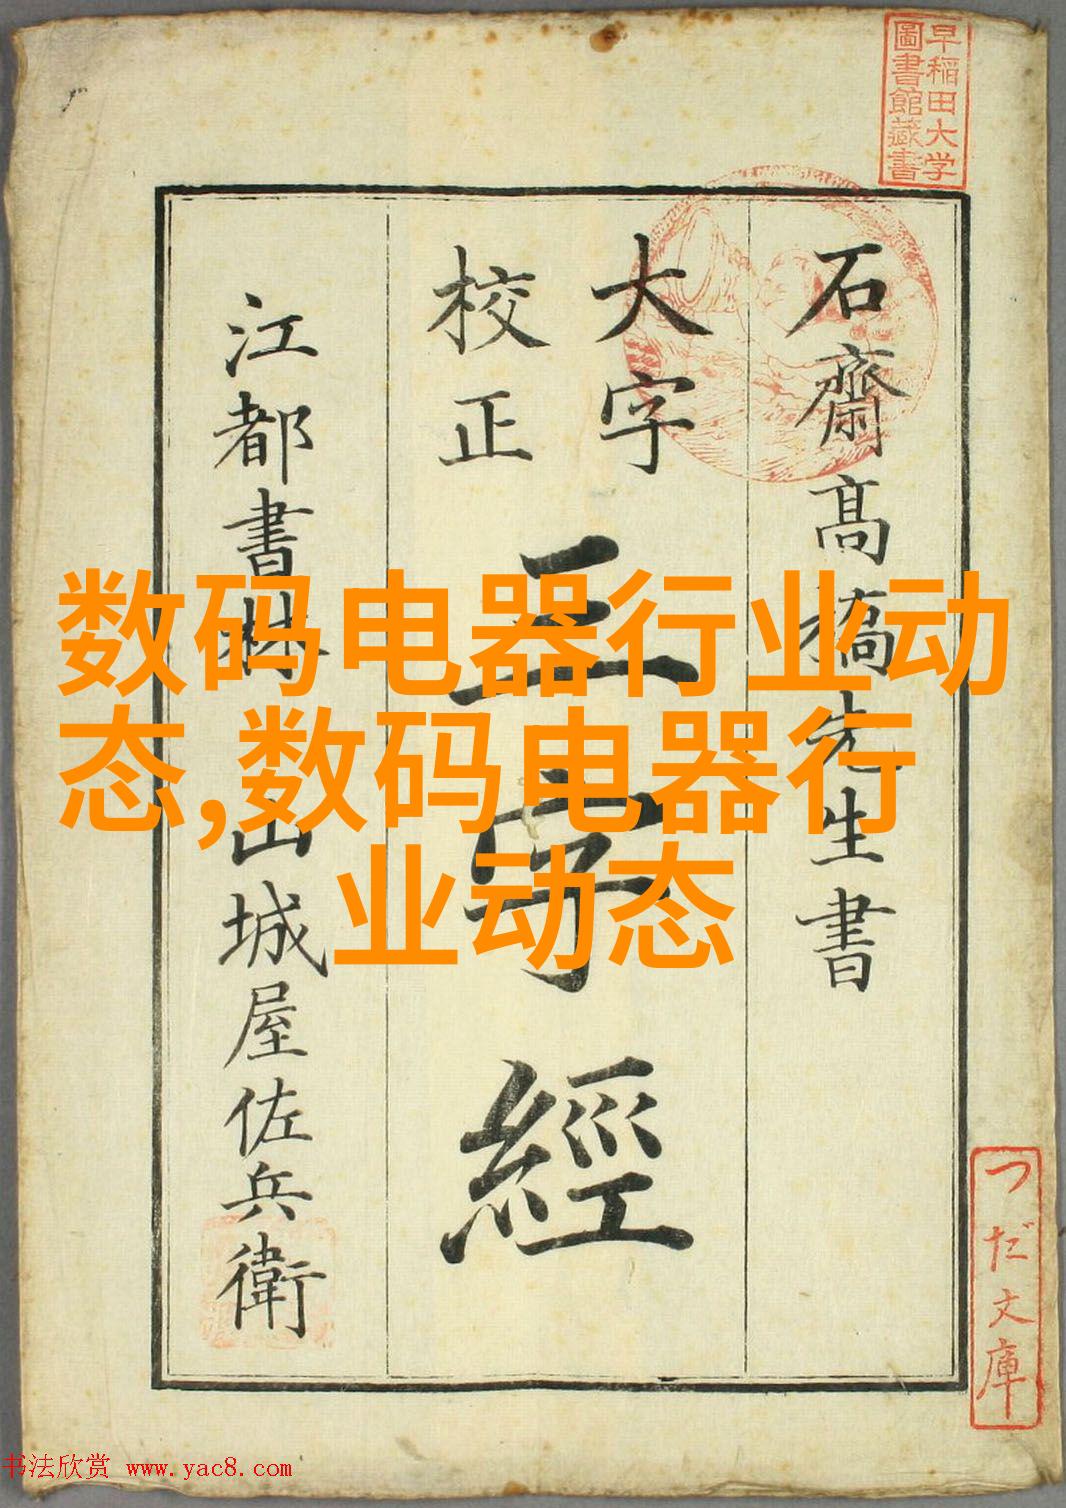 早稲田大学
圖書館藏書
石齋高橋先生書
大字
校正
三字經
江都書林 山城屋佐兵衛
数码电器行业动
态,数码电器行
业动态
つだ文庫
书法欣赏 www.yac8.com